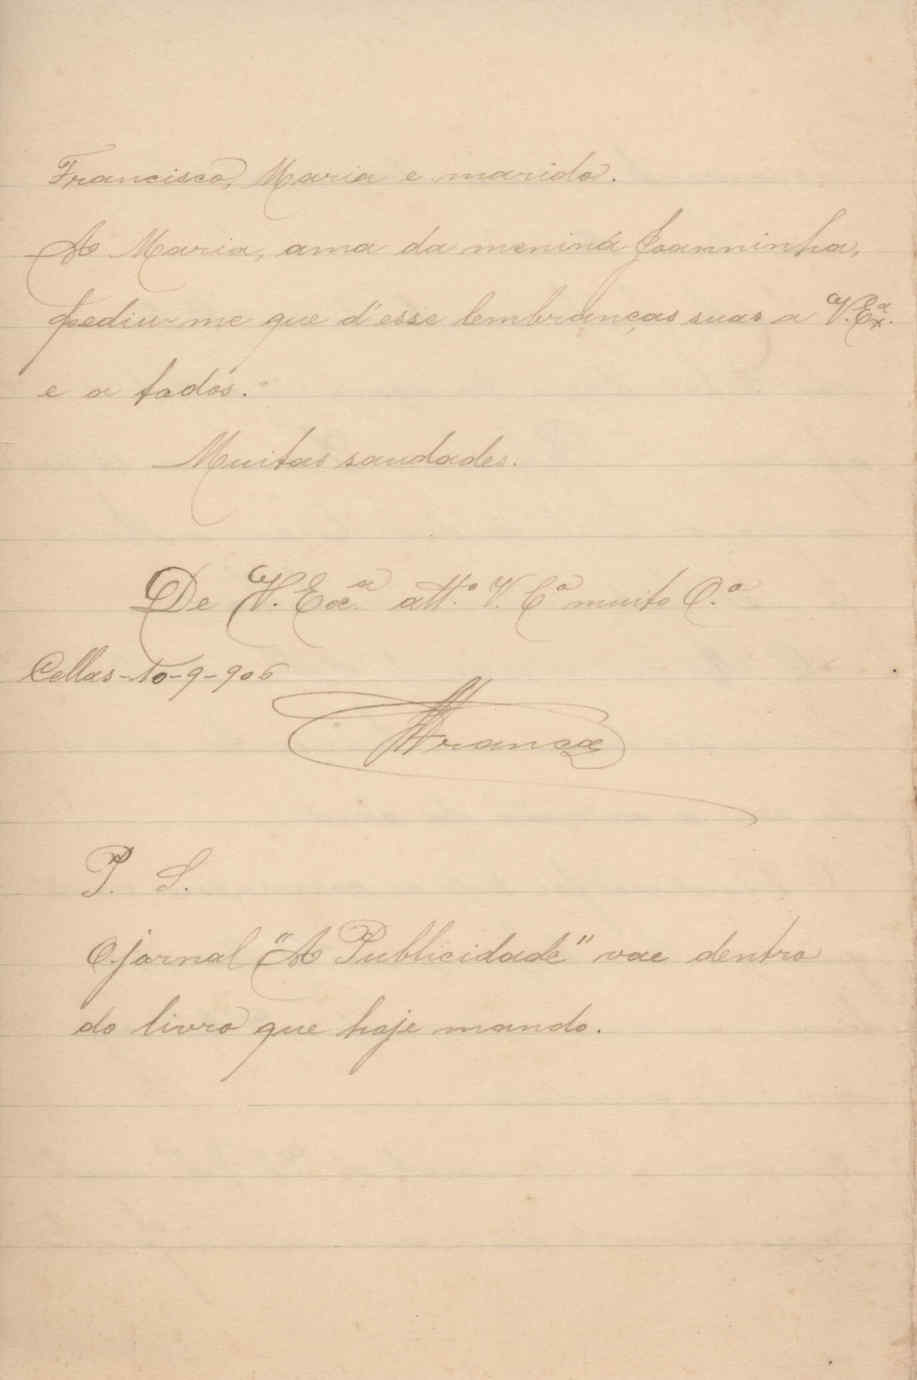 Francisco, Maria e marido.
A Maria, ama da menina Joanninha,
pediu-me que d'esse lembranças suas a V. Ex.ª
e a todos.
Muitas saudades.
De V. Ex.ª att.º V. C.º muito O.º
Cellas-10-9-906
França
P. S.
O jornal "A Publicidade" vae dentro
do livro que hoje mando.